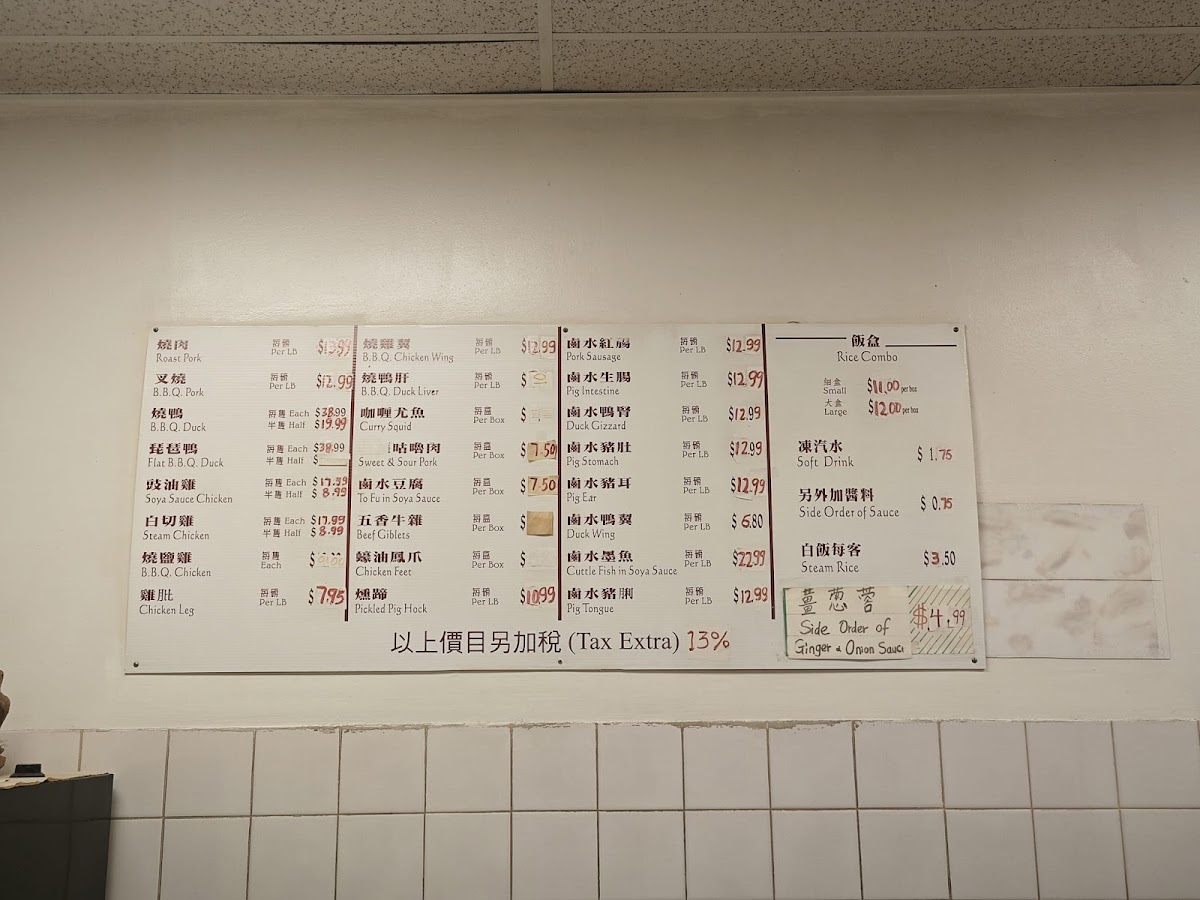 燒肉 每磅 $13.99
Roast Pork Per LB
叉燒 每磅 $12.99
B.B.Q. Pork Per LB
燒鴨 每隻 Each $38.99
B.B.Q. Duck 半隻 Half $19.99
琵琶鴨 每隻 Each $38.99
Flat B.B.Q. Duck 半隻 Half $
豉油雞 每隻 Each $17.99
Soya Sauce Chicken 半隻 Half $8.99
白切雞 每隻 Each $17.99
Steam Chicken 半隻 Half $8.99
燒鹽雞 每隻 $
B.B.Q. Chicken Each
雞肶 每磅 $7.95
Chicken Leg Per LB
燒雞翼 每磅 $12.99
B.B.Q. Chicken Wing Per LB
燒鴨肝 每磅 $
B.B.Q. Duck Liver Per LB
咖喱尤魚 每盒 $
Curry Squid Per Box
咕嚕肉 每盒 $7.50
Sweet & Sour Pork Per Box
鹵水豆腐 每盒 $7.50
To Fu in Soya Sauce Per Box
五香牛雜 每盒 $
Beef Giblets Per Box
蠔油鳳爪 每盒 $
Chicken Feet Per Box
燻蹄 每磅 $10.99
Pickled Pig Hock Per LB
鹵水紅腸 每磅 $12.99
Pork Sausage Per LB
鹵水生腸 每磅 $12.99
Pig Intestine Per LB
鹵水鴨腎 每磅 $12.99
Duck Gizzard Per LB
鹵水豬肚 每磅 $12.99
Pig Stomach Per LB
鹵水豬耳 每磅 $12.99
Pig Ear Per LB
鹵水鴨翼 每磅 $6.80
Duck Wing Per LB
鹵水墨魚 每磅 $22.99
Cuttle Fish in Soya Sauce Per LB
鹵水豬脷 每磅 $12.99
Pig Tongue Per LB
飯盒
Rice Combo
細盒 $11.00 per box
Small
大盒 $12.00 per box
Large
凍汽水 $1.75
Soft Drink
另外加醬料 $0.75
Side Order of Sauce
白飯每客 $3.50
Steam Rice
薑葱蓉 $4.99
Side Order of
Ginger & Onion Sauce
以上價目另加稅 (Tax Extra) 13%